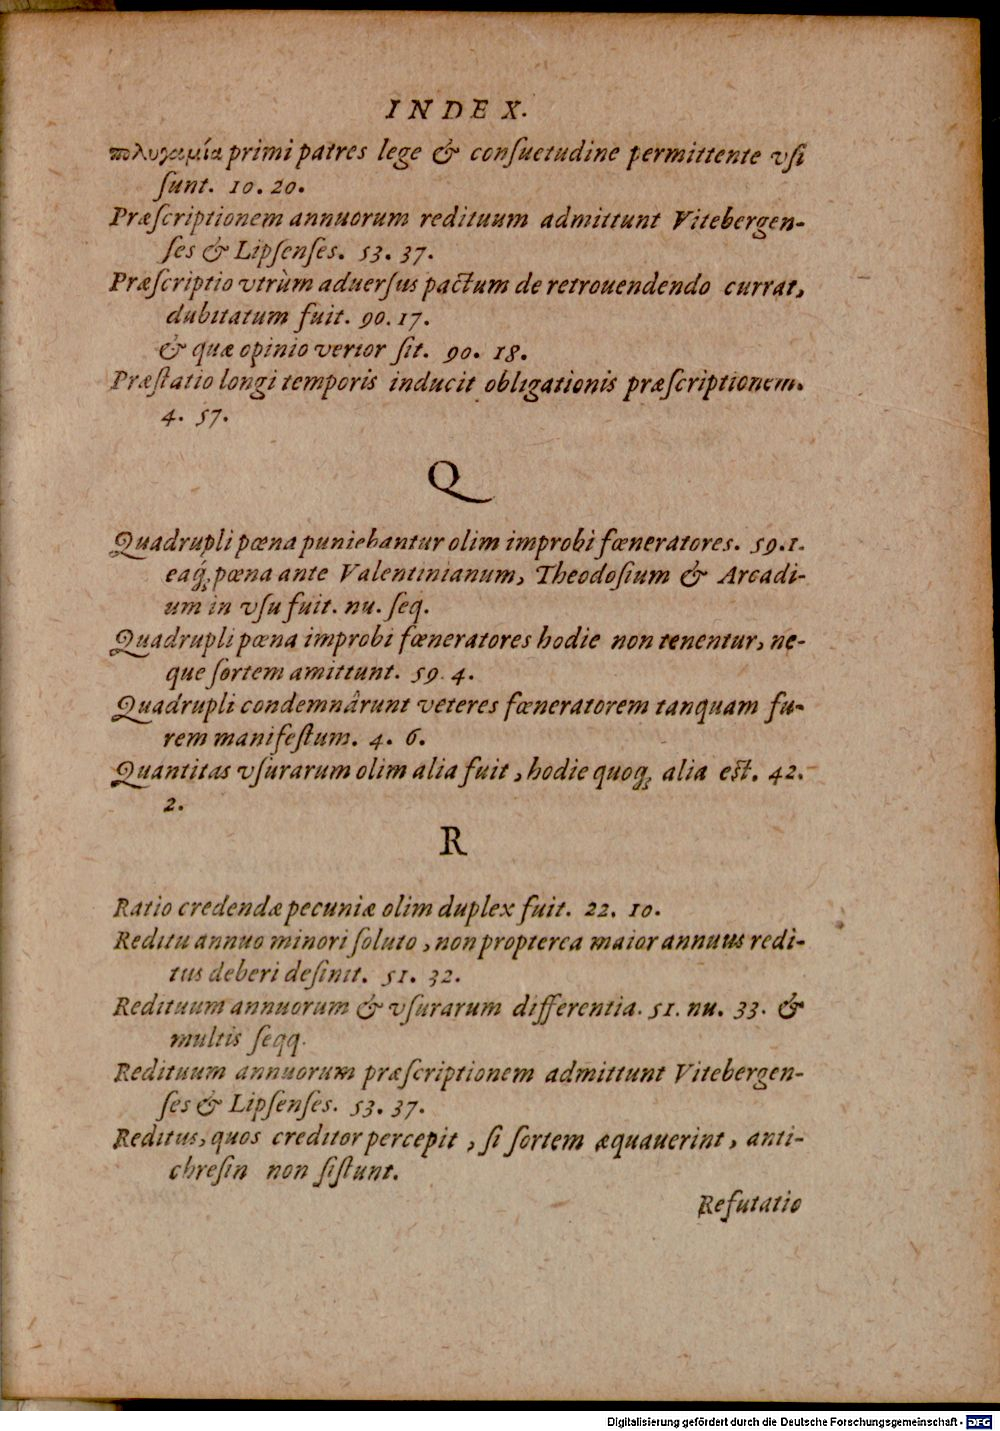 INDEX.
πολυγαμία primi patres lege & conſuetudine permittente vſi
ſunt. 10. 20.
Præſcriptionem annuorum redituum admittunt Vitebergen-
ſes & Lipſenſes. 53. 37.
Præſcriptio vtrùm aduerſus pactum de retrouendendo currat,
dubitatum fuit. 90. 17.
& quæ opinio verior ſit. 90. 18.
Præſtatio longi temporis inducit obligationis præſcriptionem.
4. 57.
Q
Quadrupli pœna puniebantur olim improbi fœneratores. 59. 1.
eaq́ꝫ pœna ante Valentinianum, Theodoſium & Arcadi-
um in vſu fuit. nu. ſeq.
Quadrupli pœna improbi fœneratores hodie non tenentur, ne-
que ſortem amittunt. 59. 4.
Quadrupli condemnârunt veteres fœneratorem tanquam fu-
rem manifeſtum. 4. 6.
Quantitas vſurarum olim alia fuit, hodie quoqꝫ alia eſt. 42.
2.
R
Ratio credendæ pecuniæ olim duplex fuit. 22. 10.
Reditu annuo minori ſoluto, non propterea maior annuus redi-
tus deberi deſinit. 51. 32.
Redituum annuorum & vſurarum differentia. 51. nu. 33. &
multis ſeqq.
Redituum annuorum præſcriptionem admittunt Vitebergen-
ſes & Lipſenſes. 53. 37.
Reditus, quos creditor percepit, ſi ſortem æquauerint, anti-
chreſin non ſiſtunt.
Refutatio
Digitalisierung gefördert durch die Deutsche Forschungsgemeinschaft - DFG